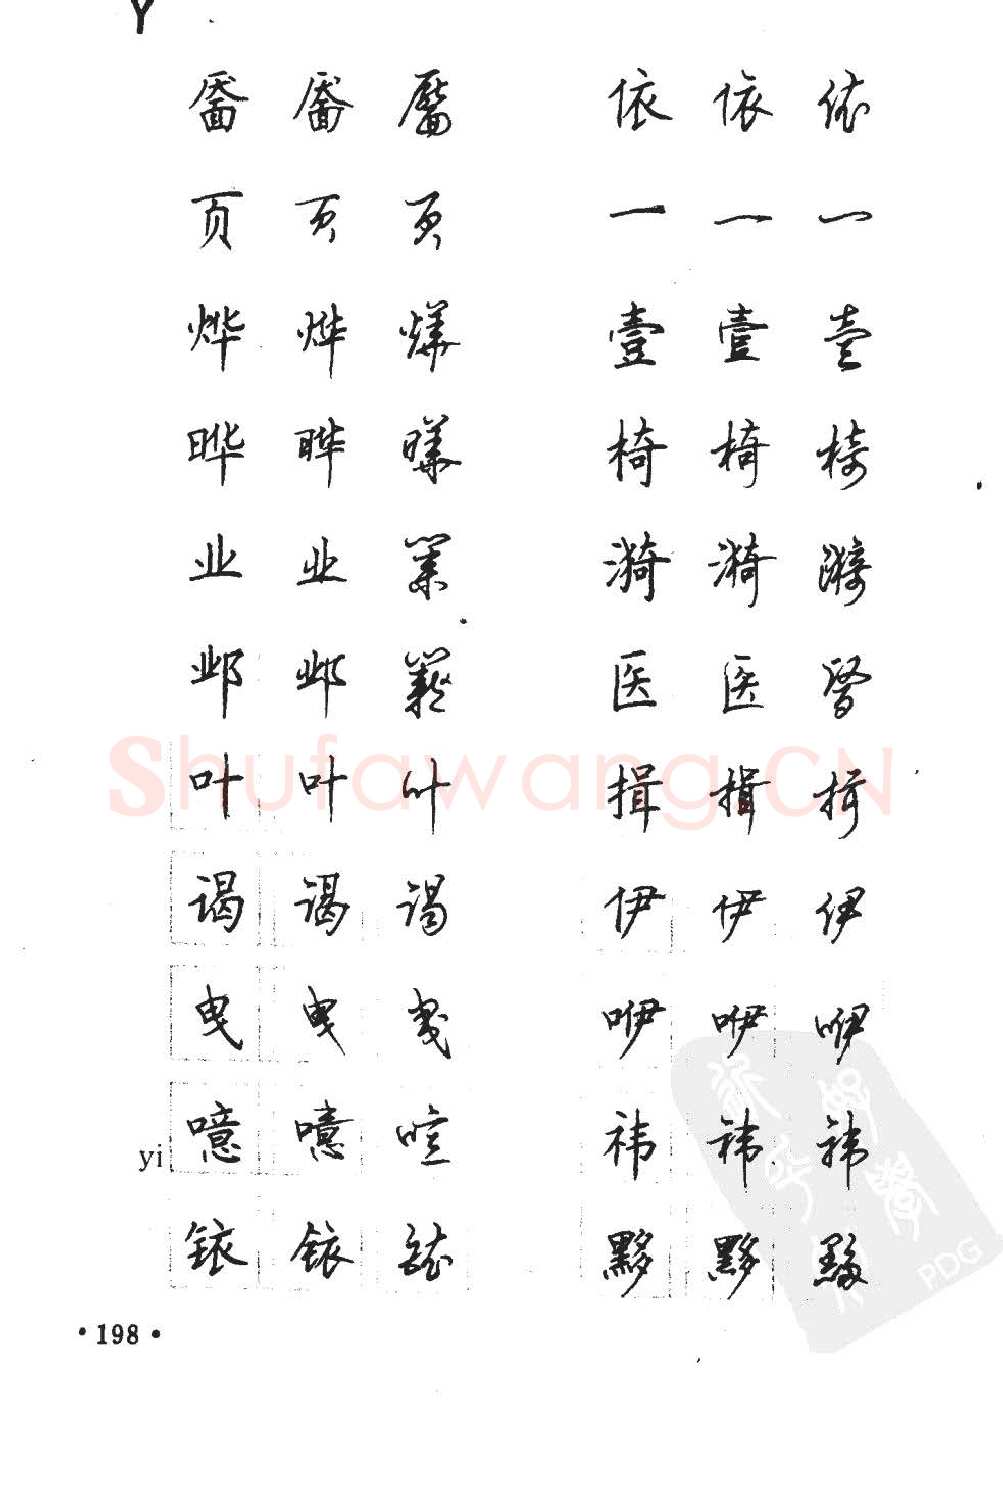 Y
靥 靥 靨 依 依 依
页 页 頁 一 一 一
烨 烨 燁 壹 壹 壹
晔 晔 曄 椅 椅 椅
业 业 業 漪 漪 漪
邺 邺 鄴 医 医 醫
叶 叶 叶 揖 揖 揖
谒 谒 谒 伊 伊 伊
曳 曳 曳 咿 咿 咿
yi 噫 噫 噫 祎 祎 禕
铱 铱 銥 黟 黟 黟
·198·
Shufawang.CN
PDG